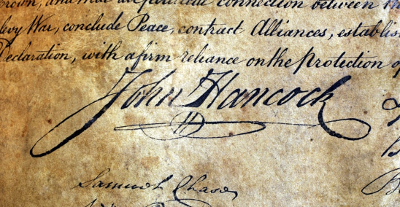 and
connection between
levy War, conclude Peace, contract Alliances, establis
Declaration, with a firm reliance on the Protection of
John Hancock
Samuel Chase